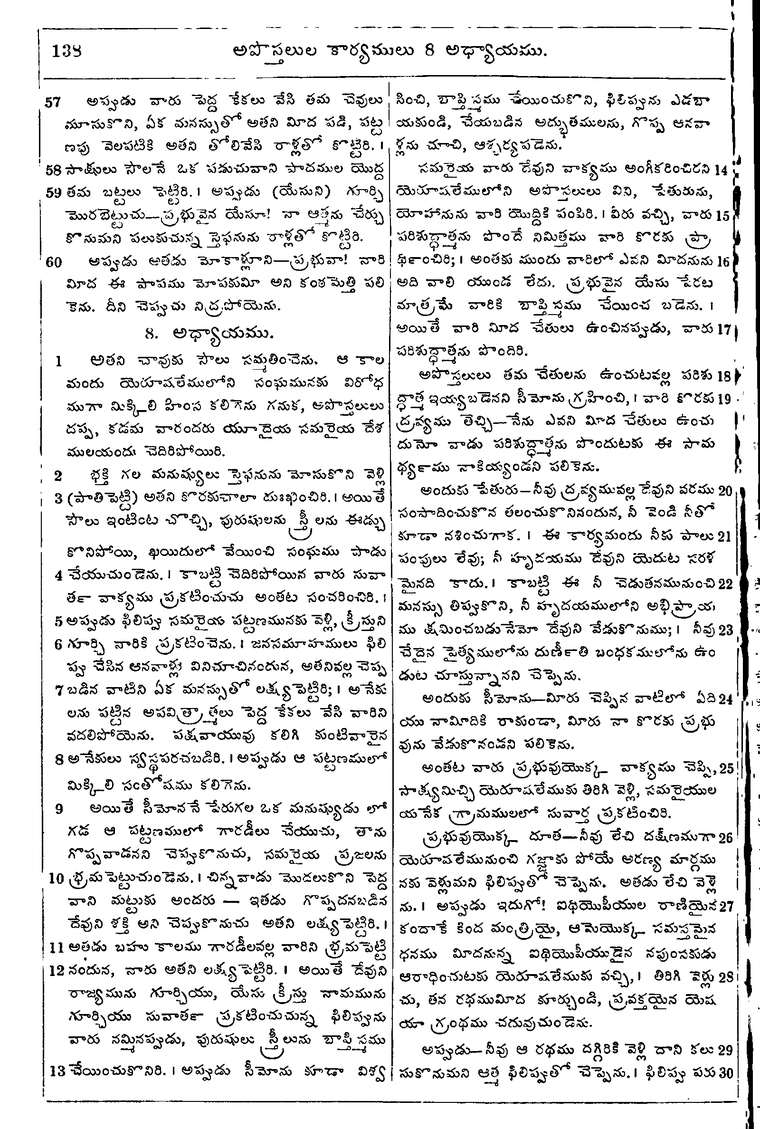 138 అపొస్తలుల కార్యములు 8 అధ్యాయము.
57 అప్పుడు వారు పెద్ద కేకలు వేసి తమ చెవులు
మూసుకొని, ఏక మనస్సుతో అతని మీద పడి, పట్ట
ణపు వెలపటికి అతని తోలివేసి రాళ్లతో కొట్టిరి. ।
58 సాక్షులు సౌలనే ఒక పడుచువాని పాదముల యొద్ద
59 తమ బట్టలు పెట్టిరి. । అప్పుడు (యేసుని) గూర్చి
మొరబెట్టుచు—ప్రభువైన యేసూ! నా ఆత్మను చేర్చు
కొనుమని పలుకుచున్న స్తెఫనును రాళ్లతో కొట్టిరి.
60 అప్పుడు అతడు మోకాళ్లూని—ప్రభువా! వారి
మీద ఈ పాపము మోపకుమీ అని కంఠమెత్తి పలి
కెను. దీని చెప్పుచు నిద్రపోయెను.
8. అధ్యాయము.
1 అతని చావుకు సౌలు సమ్మతించెను. ఆ కాల
మందు యెరూషలేములోని సంఘమునకు విరోధ
ముగా మిక్కిలి హింస కలిగెను గనుక, అపొస్తలులు
దప్ప, కడమ వారందరు యూదైయ సమరైయ దేశ
ములయందు చెదిరిపోయిరి.
2 భక్తి గల మనుష్యులు స్తెఫనును మోసుకొని వెళ్లి
3 (పాతిపెట్టి) అతని కొరకుచాలా దుఃఖించిరి. । అయితే
సౌలు ఇంటింట చొచ్చి, పురుషులను స్త్రీలను ఈడ్చు
కొనిపోయి, ఖయిదులో వేయించి సంఘము పాడు
4 చేయుచుండెను. । కాబట్టి చెదిరిపోయిన వారు సువా
ర్త వాక్యము ప్రకటించుచు అంతట సంచరించిరి. ।
5 అప్పుడు ఫిలిప్పు సమరైయ పట్టణమునకు వెళ్లి, క్రీస్తుని
6 గూర్చి వారికి ప్రకటించెను. । జనసమూహములు ఫిలి
ప్పు చేసిన ఆనవాళ్లు వినిచూచినందున, అతనివల్ల చెప్ప
7 బడిన వాటిని ఏక మనస్సుతో లక్ష్యపెట్టిరి; । అనేకు
లను పట్టిన అపవిత్రాత్మలు పెద్ద కేకలు వేసి వారిని
వదలిపోయెను. పక్షవాయువు కలిగి కుంటివారైన
8 అనేకులు స్వస్థపరచబడిరి. । అప్పుడు ఆ పట్టణములో
మిక్కిలి సంతోషము కలిగెను.
9 అయితే సీమోననే పేరుగల ఒక మనుష్యుడు లో
గడ ఆ పట్టణములో గారడీలు చేయుచు, తాను
గొప్పవాడనని చెప్పుకొనుచు, సమరైయ ప్రజలను
10 భ్రమపెట్టుచుండెను. । చిన్నవాడు మొదలుకొని పెద్ద
వాని మట్టుకు అందరు — ఇతడు గొప్పదనబడిన
దేవుని శక్తి అని చెప్పుకొనుచు అతని లక్ష్యపెట్టిరి. ।
11 అతడు బహు కాలము గారడీలవల్ల వారిని భ్రమపెట్టి
12 నందున, వారు అతని లక్ష్యపెట్టిరి. । అయితే దేవుని
రాజ్యమును గూర్చియు, యేసు క్రీస్తు నామమును
గూర్చియు సువార్త ప్రకటించుచున్న ఫిలిప్పును
వారు నమ్మినప్పుడు, పురుషులు స్త్రీలును బాప్తిస్మము
13 చేయించుకొనిరి. । అప్పుడు సీమోను కూడా విశ్వ
సించి, బాప్తిస్మము చేయించుకొని, ఫిలిప్పును ఎడబా
యకుండి, చేయబడిన అద్భుతములను, గొప్ప ఆనవా
ళ్లను చూచి, ఆశ్చర్యపడెను.
సమరైయ వారు దేవుని వాక్యము అంగీకరించిరని 14
యెరూషలేములోని అపొస్తలులు విని, పేతురును,
యోహానును వారి యొద్దికి పంపిరి. । వీరు వచ్చి, వారు 15
పరిశుద్ధాత్మను పొందే నిమిత్తము వారి కొరకు ప్రా
ర్థించిరి; । అంతకు ముందు వారిలో ఎవని మీదనును 16
అది వాలి యుండ లేదు. ప్రభువైన యేసు పేరట
మాత్రమే వారికి బాప్తిస్మము చేయించ బడెను. ।
అయితే వారి మీద చేతులు ఉంచినప్పుడు, వారు 17
పరిశుద్ధాత్మను పొందిరి.
అపొస్తలులు తమ చేతులను ఉంచుటవల్ల పరిశు 18
ద్ధాత్మ ఇయ్యబడెనని సీమోను గ్రహించి, । వారి కొరకు 19
ద్రవ్యము తెచ్చి—నేను ఎవని మీద చేతులు ఉంచు
దునో వాడు పరిశుద్ధాత్మను పొందుటకు ఈ సామ
ర్థ్యము నాకియ్యండని పలికెను.
అందుకు పేతురు—నీవు ద్రవ్యమువల్ల దేవుని వరము 20
సంపాదించుకొన తలంచుకొనినందున, నీ వెండి నీతో
కూడా నశించుగాక. । ఈ కార్యమందు నీకు పాలు 21
పంపులు లేవు; నీ హృదయము దేవుని యెదుట సరళ
మైనది కాదు. । కాబట్టి ఈ నీ చెడుతనమునుంచి 22
మనస్సు తిప్పుకొని, నీ హృదయములోని అభిప్రాయ
ము క్షమించబడునేమో దేవుని వేడుకొనుము; । నీవు 23
చేదైన పైత్యములోను దుర్ణీతి బంధకములోను ఉం
డుట చూస్తున్నానని చెప్పెను.
అందుకు సీమోను—మీరు చెప్పిన వాటిలో ఏది 24
యు నామీదికి రాకుండా, మీరు నా కొరకు ప్రభు
వును వేడుకొనండని పలికెను.
అంతట వారు ప్రభువుయొక్క వాక్యము చెప్పి, 25
సాక్ష్యమిచ్చి యెరూషలేముకు తిరిగి వెళ్లి, సమరైయుల
యనేక గ్రామములలో సువార్త ప్రకటించిరి.
ప్రభువుయొక్క దూత—నీవు లేచి దక్షిణముగా 26
యెరూషలేమునుంచి గజ్జాకు పోయే అరణ్య మార్గము
నకు వెళ్లుమని ఫిలిప్పుతో చెప్పెను. అతడు లేచి వెళ్లె
ను. । అప్పుడు ఇదుగో! ఐథియొపీయుల రాణియైన 27
కందాకే కింద మంత్రియై, ఆమెయొక్క సమస్తమైన
ధనము మీదనున్న ఐథియొపీయుడైన నపుంసకుడు
ఆరాధించుటకు యెరూషలేముకు వచ్చి, । తిరిగి వెళ్లు 28
చు, తన రథముమీద కూర్చుండి, ప్రవక్తయైన యెష
యా గ్రంథము చదువుచుండెను.
అప్పుడు—నీవు ఆ రథము దగ్గిరికి వెళ్లి దాని కలు 29
సుకొనుమని ఆత్మ ఫిలిప్పుతో చెప్పెను. । ఫిలిప్పు పరు 30